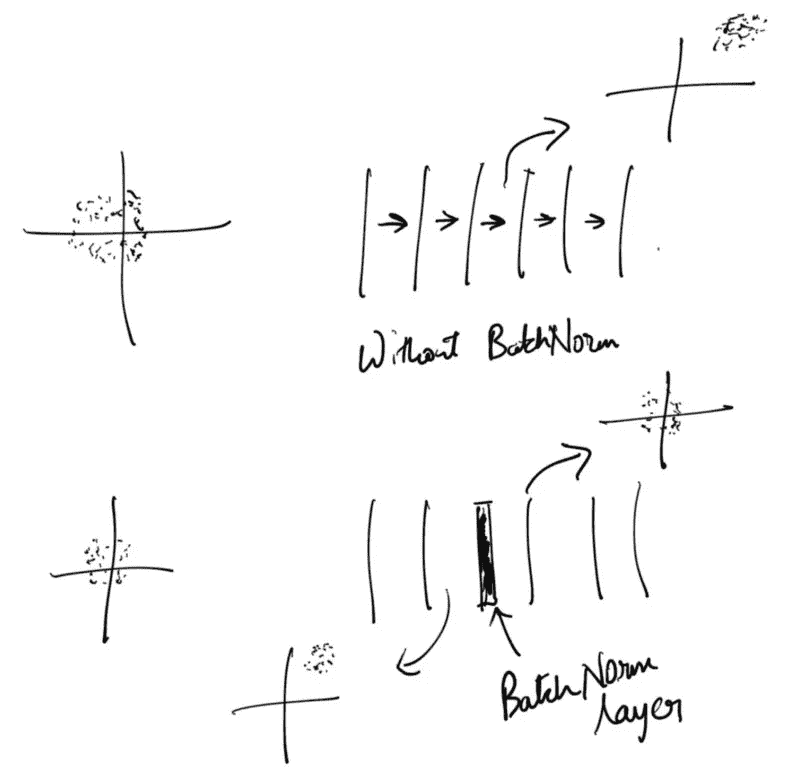 Without BatchNorm
BatchNorm
layer